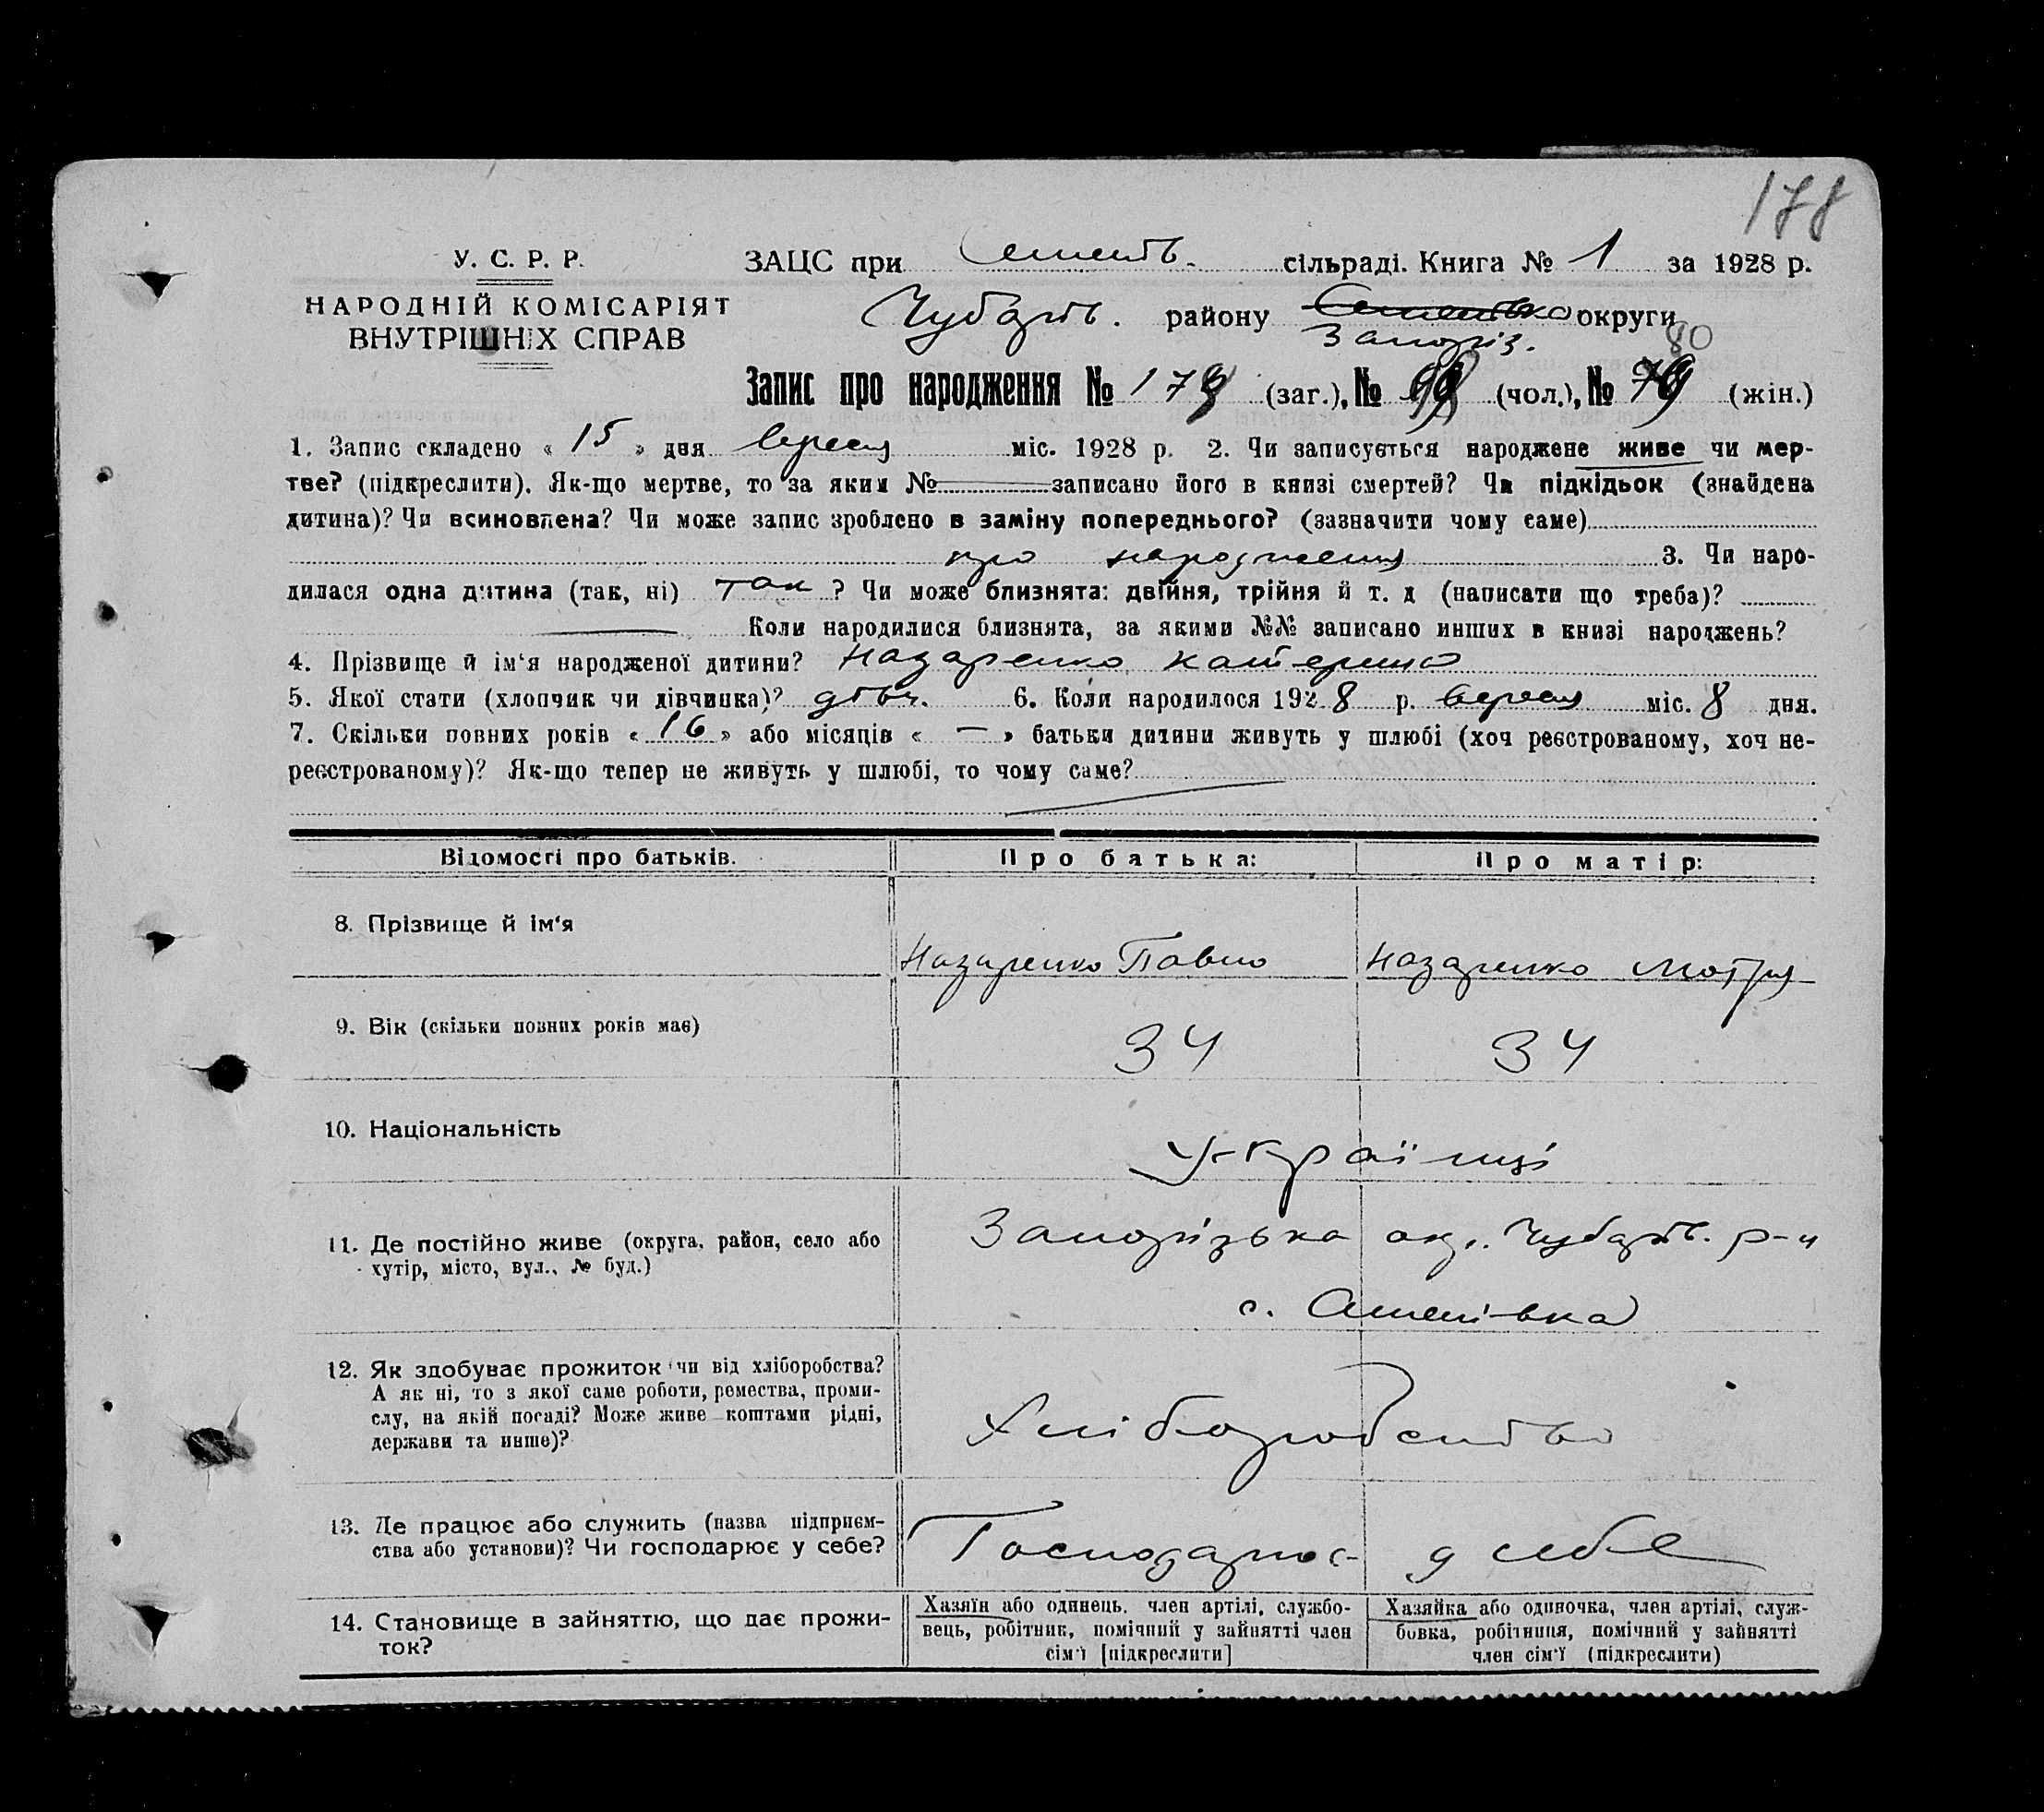 178
У. С. Р. Р.
НАРОДНІЙ КОМІСАРІЯТ
ВНУТРІШНІХ СПРАВ
ЗАЦС при сільраді. Книга № 1 за 1928 р.
Чубарів. району округи
Запоріз. 80
Запис про народження № 178 (заг.), № (чол.), № 79 (жін.)
1. Запис складено « 15 » дня вересня міс. 1928 р. 2. Чи записується народжене живе чи мер-
тве? (підкреслити). Як-що мертве, то за яким № записано його в книзі смертей? Чи підкідьок (знайдена
дитина)? Чи всиновлена? Чи може запис зроблено в заміну попереднього? (зазначити чому саме)
про народження 3. Чи наро-
дилася одна дитина (так, ні) так ? Чи може близнята: двійня, трійня й т. д (написати що треба)?
Коли народилися близнята, за якими №№ записано инших в книзі народжень?
4. Прізвище й ім‘я народженої дитини? Назаренко Катерина
5. Якої стати (хлопчик чи дівчинка)? дівч. 6. Коли народилося 1928 р. вересня міс. 8 дня.
7. Скільки повних років « 16 » або місяців « — » батьки дитини живуть у шлюбі (хоч реєстрованому, хоч не-
реєстрованому)? Як-що тепер не живуть у шлюбі, то чому саме?
Відомості про батьків. Про батька: Про матір:
8. Прізвище й ім‘я Назаренко Павло Назаренко Мотря
9. Вік (скільки повних років має) 34 34
10. Національність Українці
11. Де постійно живе (округа, район, село або
хутір, місто, вул., № буд.)
Запорізька окр. Чубарів. р-н
с.
12. Як здобуває прожиток чи від хліборобства?
А як ні, то з якої саме роботи, ремества, проми-
слу, на якій посаді? Може живе коштами рідні,
держави та инше)?
Хліборобство
13. Де працює або служить (назва підприєм-
ства або установи)? Чи господарює у себе?
Господарює у себе
14. Становище в зайняттю, що дає прожи-
ток?
Хазяїн або одинець, член артілі, службо-
вець, робітник, помічний у зайнятті член
сім‘ї [підкреслити]
Хазяйка або одиночка, член артілі, служ-
бовка, робітниця, помічний у зайнятті
член сім‘ї (підкреслити)